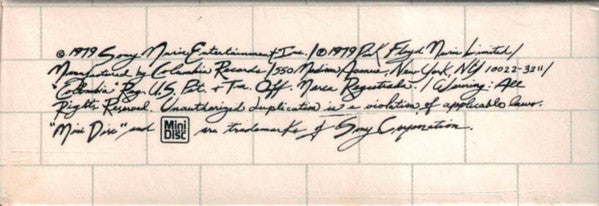 © 1979 Sony Music Entertainment Inc. / ℗ 1979 Pink Floyd Music Limited /
Manufactured by Columbia Records / 550 Madison Avenue, New York, NY 10022-3211 /
"Columbia" Reg. U.S. Pat. & Tm. Off. Marca Registrada. / Warning: All
Rights Reserved. Unauthorized duplication is a violation of applicable laws.
"Mini Disc" and Mini DISC are trademarks of Sony Corporation.